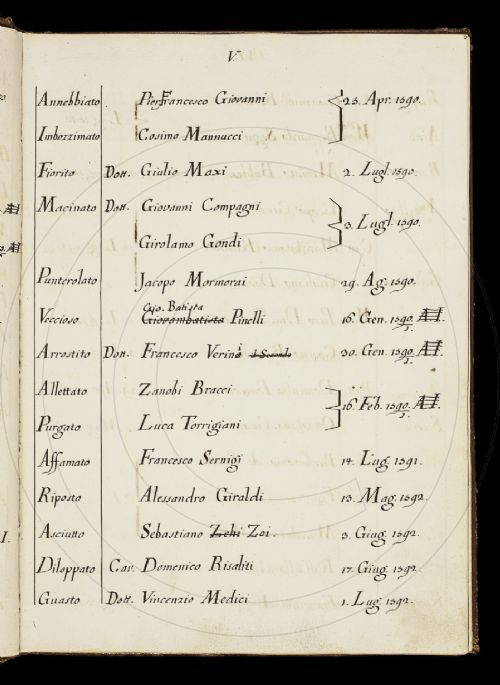 V.
Annebbiato PierFrancesco Giovanni 25. Apr. 1590.
Imbozzimato Cosimo Mannucci
Fiorito Dott. Giulio Maxi 2. Lugl. 1590.
Macinato Dott. Giovanni Compagni 3. Lugl. 1590.
Girolamo Gondi
Punterolato Jacopo Mormorai 29. Ag. 1590.
Gio. Batista
Veccioso Giovambatista Pinelli 16. Gen. 1590/1. AI.
Arrostito Dott. Francesco Verini il Secondo 30. Gen. 1590/1. AI.
Allettato Zanobi Bracci 16. Feb. 1590/1. AI.
Purgato Luca Torrigiani
Affamato Francesco Sernigi 14. Lug. 1591.
Riposto Alessandro Giraldi 13. Mag. 1592.
Asciutto Sebastiano Zehi Zoi. 3. Giug. 1592.
Diloppato Cav. Domenico Risaliti 17. Giug. 1592.
Guasto Dott. Vincenzio Medici 1. Lug. 1592.